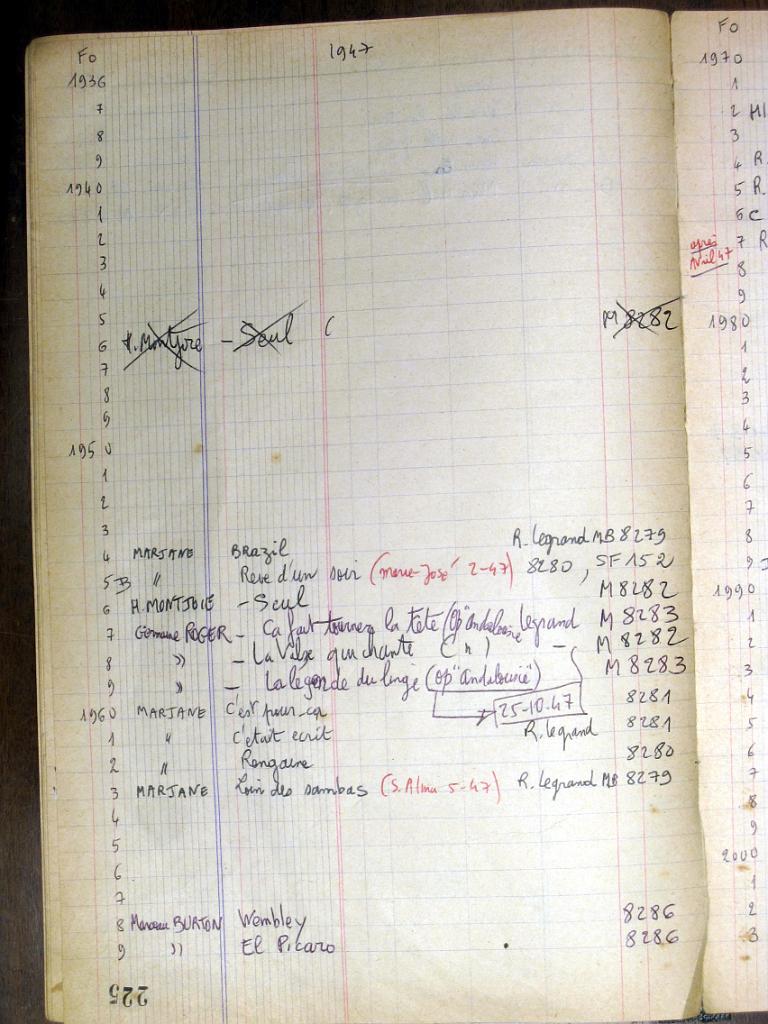 FO 1947
1936
7
8
9
1940
1
2
3
4
5
6 H. Montjoie - Seul ( M 8282
7
8
9
1950
1
2
3
4 MARJANE Brazil R. Legrand MB 8279
5 B " Reve d'un soir (Marie-José 2-47) 8280, SF 152
6 H. MONTJOIE - Seul M 8282
7 Germaine ROGER - Ca fait tourner la tête (Op "Andalousie" Legrand M 8283
8 " - La Valse qui chante ( " ) - M 8282
9 " - La légende du linge (Op "Andalousie") M 8283
1960 MARJANE C'est pour ça 25-10.47 8281
1 " C'etait ecrit R. Legrand 8281
2 " Rengaine 8280
3 MARJANE Loin des sambas (S. Alma 5-47) R. Legrand MB 8279
4
5
6
7
8 Marceau BURTON Wembley 8286
9 " El Picaro 8286
225
FO
1970
1
2 HI
3
4 R.
5 R.
6 C
7 R
après Avril 47
8
9
1980
1
2
3
4
5
6
7
8
9
1990
1
2
3
4
5
6
7
8
9
2000
1
2
3